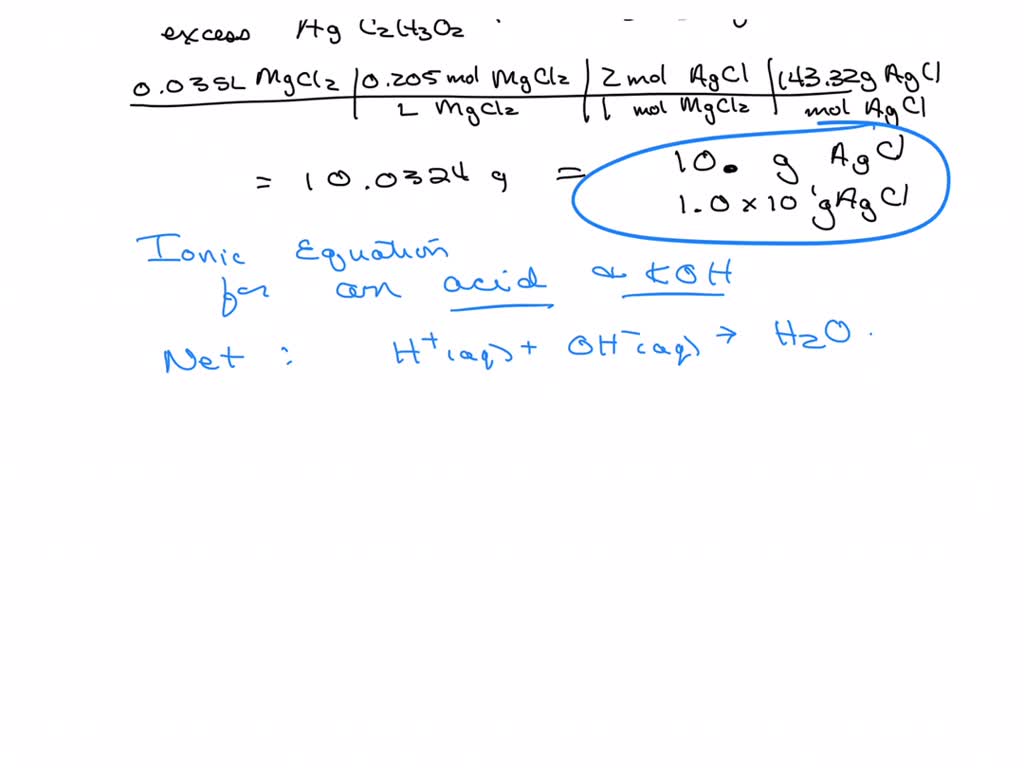 excess Ag C2H3O2
0.035L MgCl2 | 0.205 mol MgCl2 | 2 mol AgCl | 143.32g AgCl
L MgCl2 | 1 mol MgCl2 | mol AgCl
= 10.0324 g = 10. g AgCl
1.0 x 10^1 g AgCl
Ionic Equation
for an acid & KOH
Net : H+(aq) + OH-(aq) → H2O.